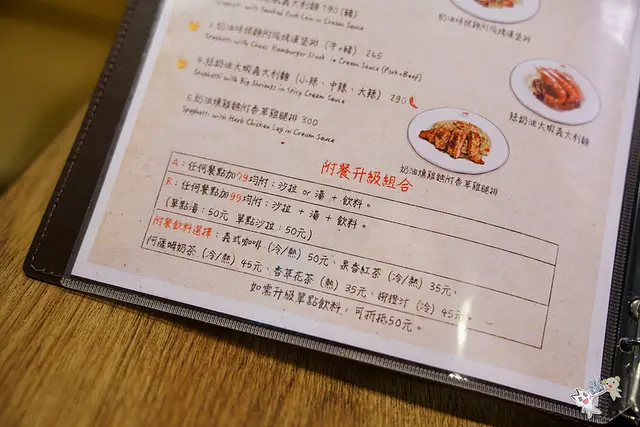 義大利麵 190 (豬)
Spaghetti with Smoked Pork Loin in Cream Sauce
(牛+豬) 265
Spaghetti with Cheese Hamburger Steak in Cream Sauce (Pork+Beef)
4.辣奶油大蝦義大利麵 (小辣、中辣、大辣) 290
Spaghetti with Big Shrimps in Spicy Cream Sauce
5.奶油燻雞麵附香草雞腿排 300
Spaghetti with Herb Chicken Leg in Cream Sauce
辣奶油大蝦義大利麵
奶油燻雞麵附香草雞腿排
附餐升級組合
A:任何餐點加79均附:沙拉 or 湯 + 飲料。
B:任何餐點加99均附:沙拉 + 湯 + 飲料。
(單點湯:50元 單點沙拉:50元)
附餐飲料選擇:義式咖啡 (冷/熱) 50元、果香紅茶 (冷/熱) 35元、
阿薩姆奶茶 (冷/熱) 45元、香草花茶 (熱) 35元、柳橙汁 (冷) 45元。
如需升級單點飲料,可折抵50元。